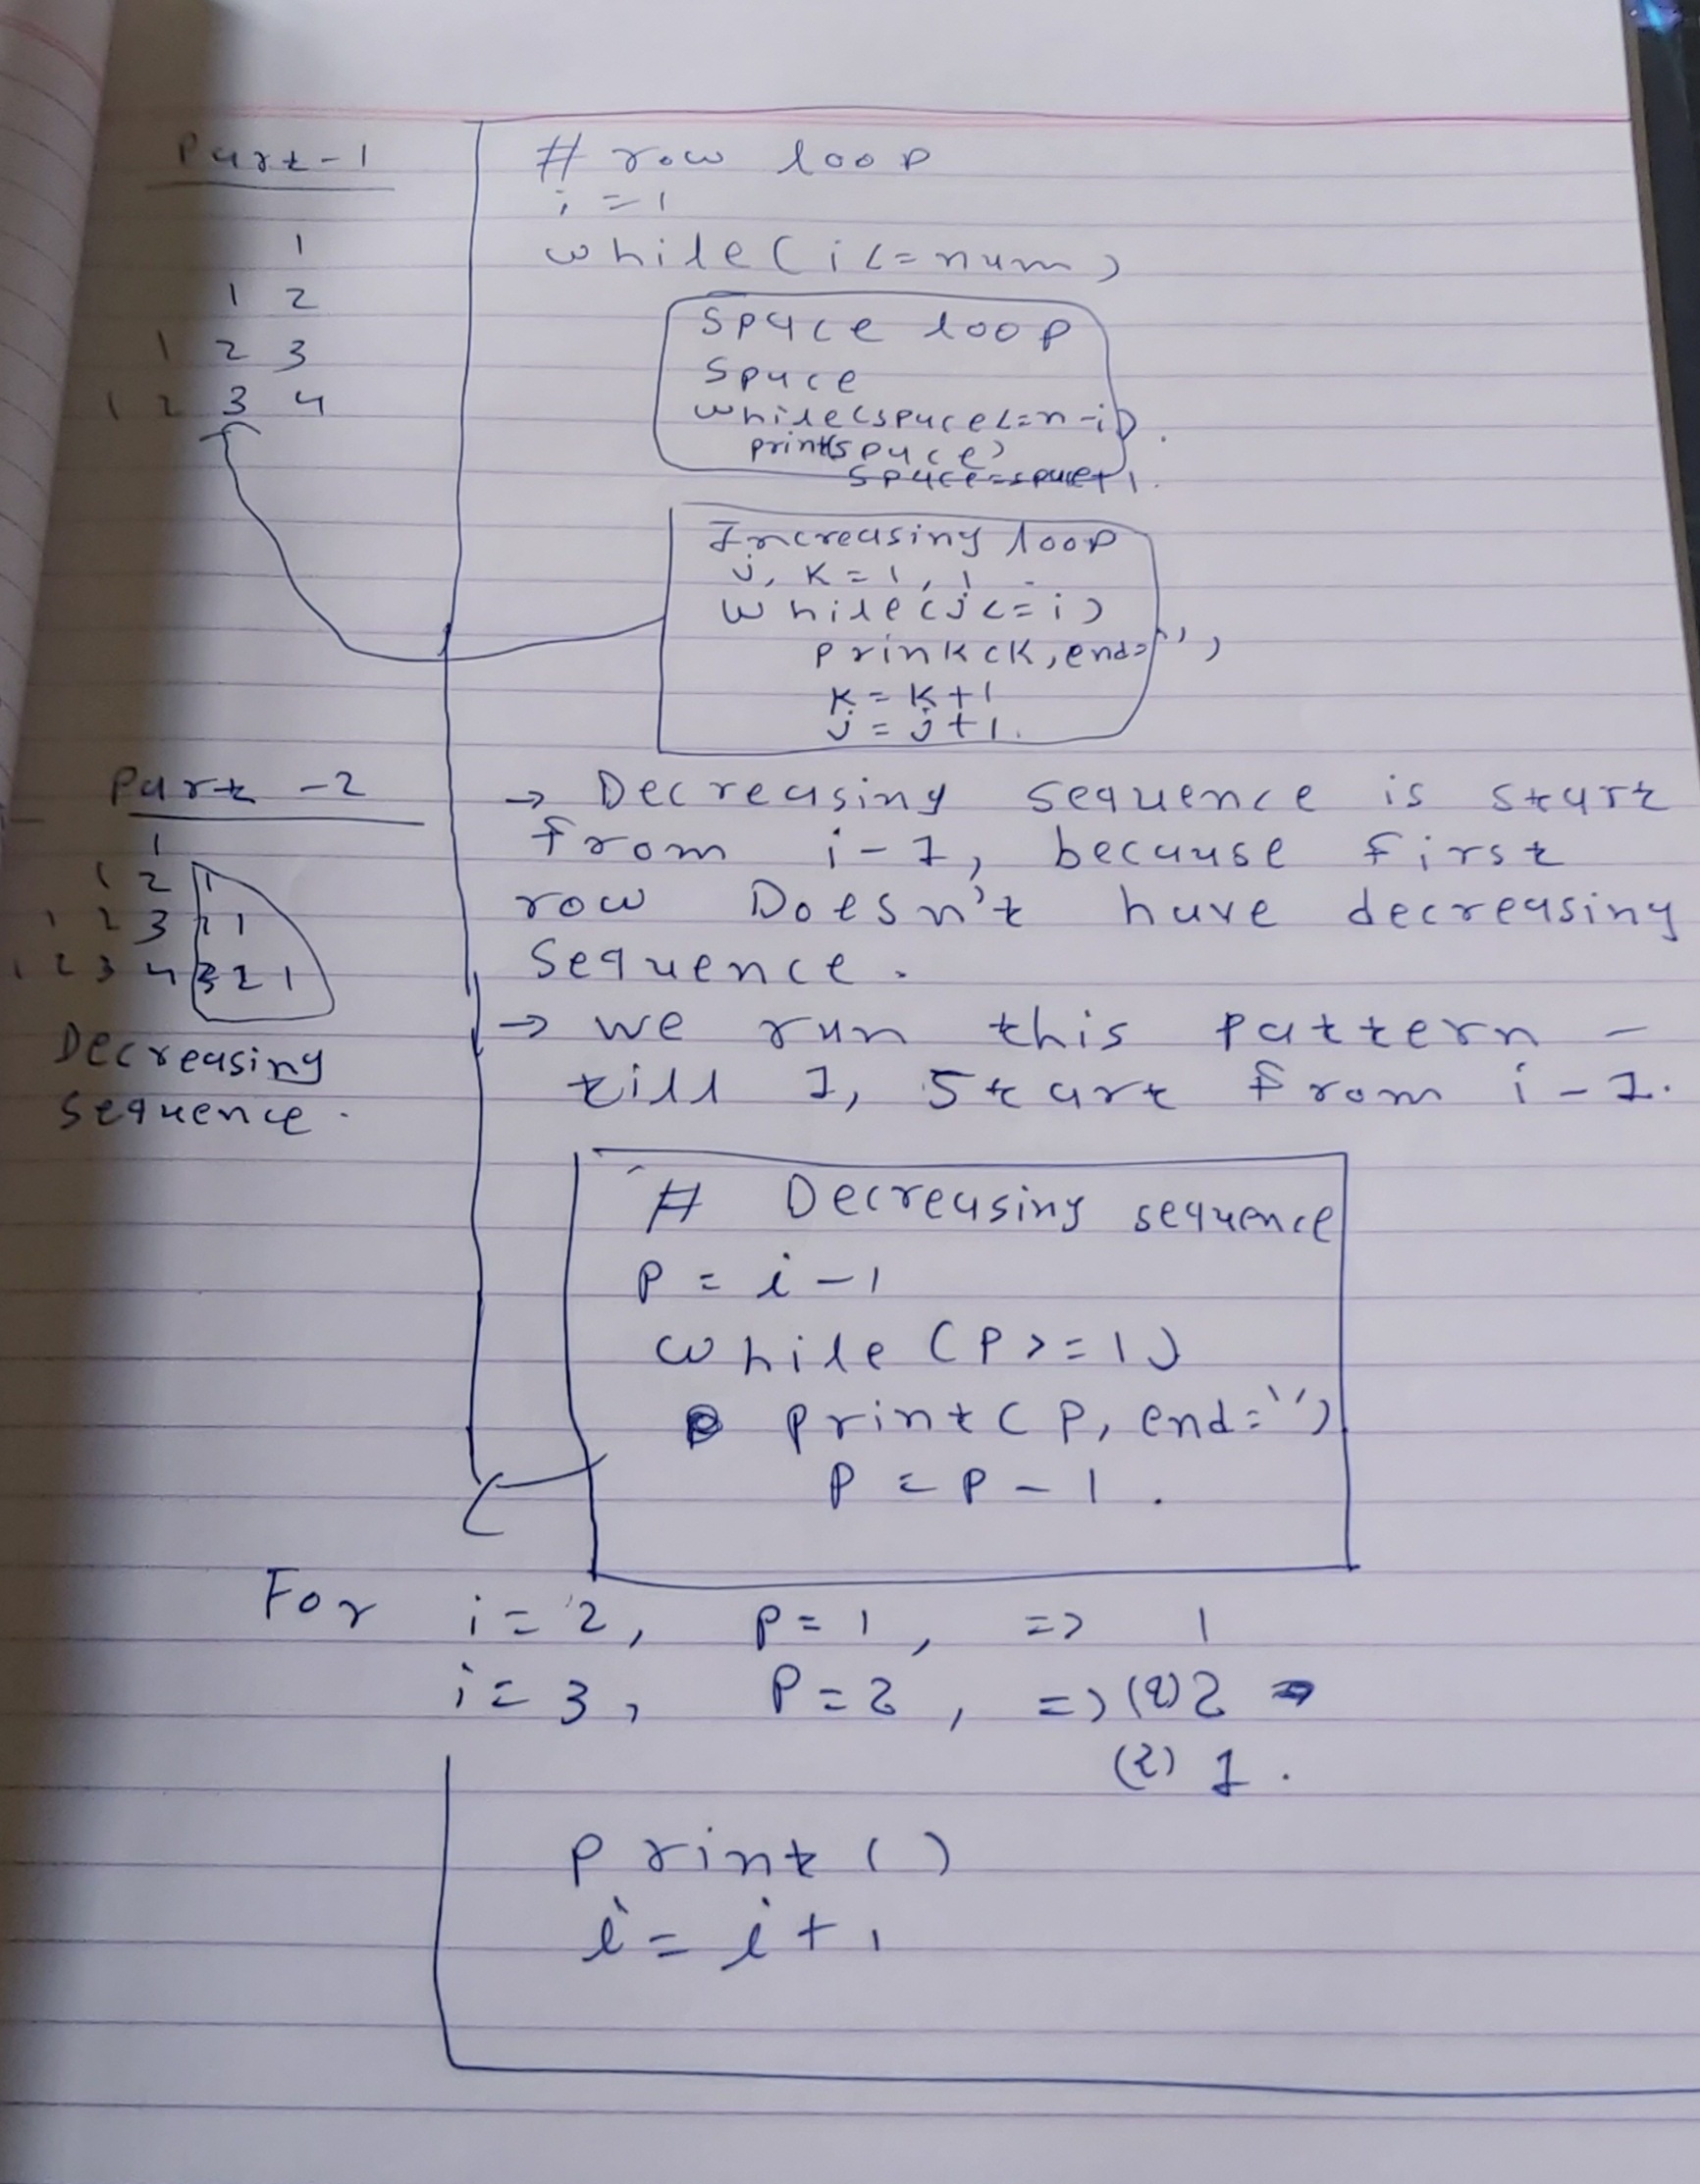 Part-1
1
1 2
1 2 3
1 2 3 4
# row loop
i = 1
while(i<=num)
space loop
space
while(space<=n-i)
print(space)
space=space+1.
Increasing loop
j, k = 1, 1
while(j<=i)
prink(k, end='')
k = k+1
j = j+1.
Part -2
1
1 2 1
1 2 3 2 1
1 2 3 4 3 2 1
Decreasing
sequence.
→ Decreasing sequence is start
from i-1, because first
row Doesn't have decreasing
sequence.
→ we run this pattern -
till 1, start from i-1.
# Decreasing sequence
P = i-1
while (P>=1)
print(P, end='')
P = P-1.
For i=2, P=1, => 1
i=3, P=2, => 2
(2) 1.
print()
i = i+1